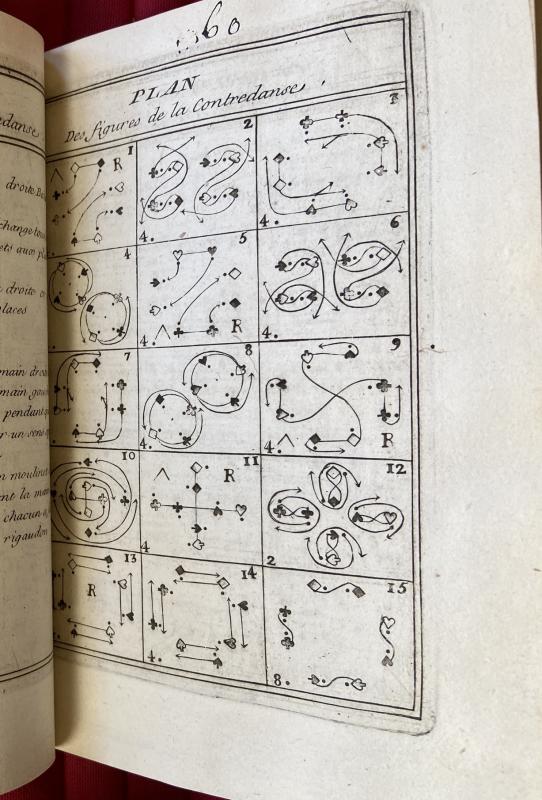 60
PLAN
Des figures de la Contredanse,
1 R
2
4.
3
4.
4
5
4. R
6
4.
7
8
4.
9
4. R
10
11 R
4
12
2
13
R
14
4.
15
8.
danse
droite. Ba
change
droite
places
main droi
main gau
pendant
r un sens
n moulinet
nt la ma
chacun
rigaudon